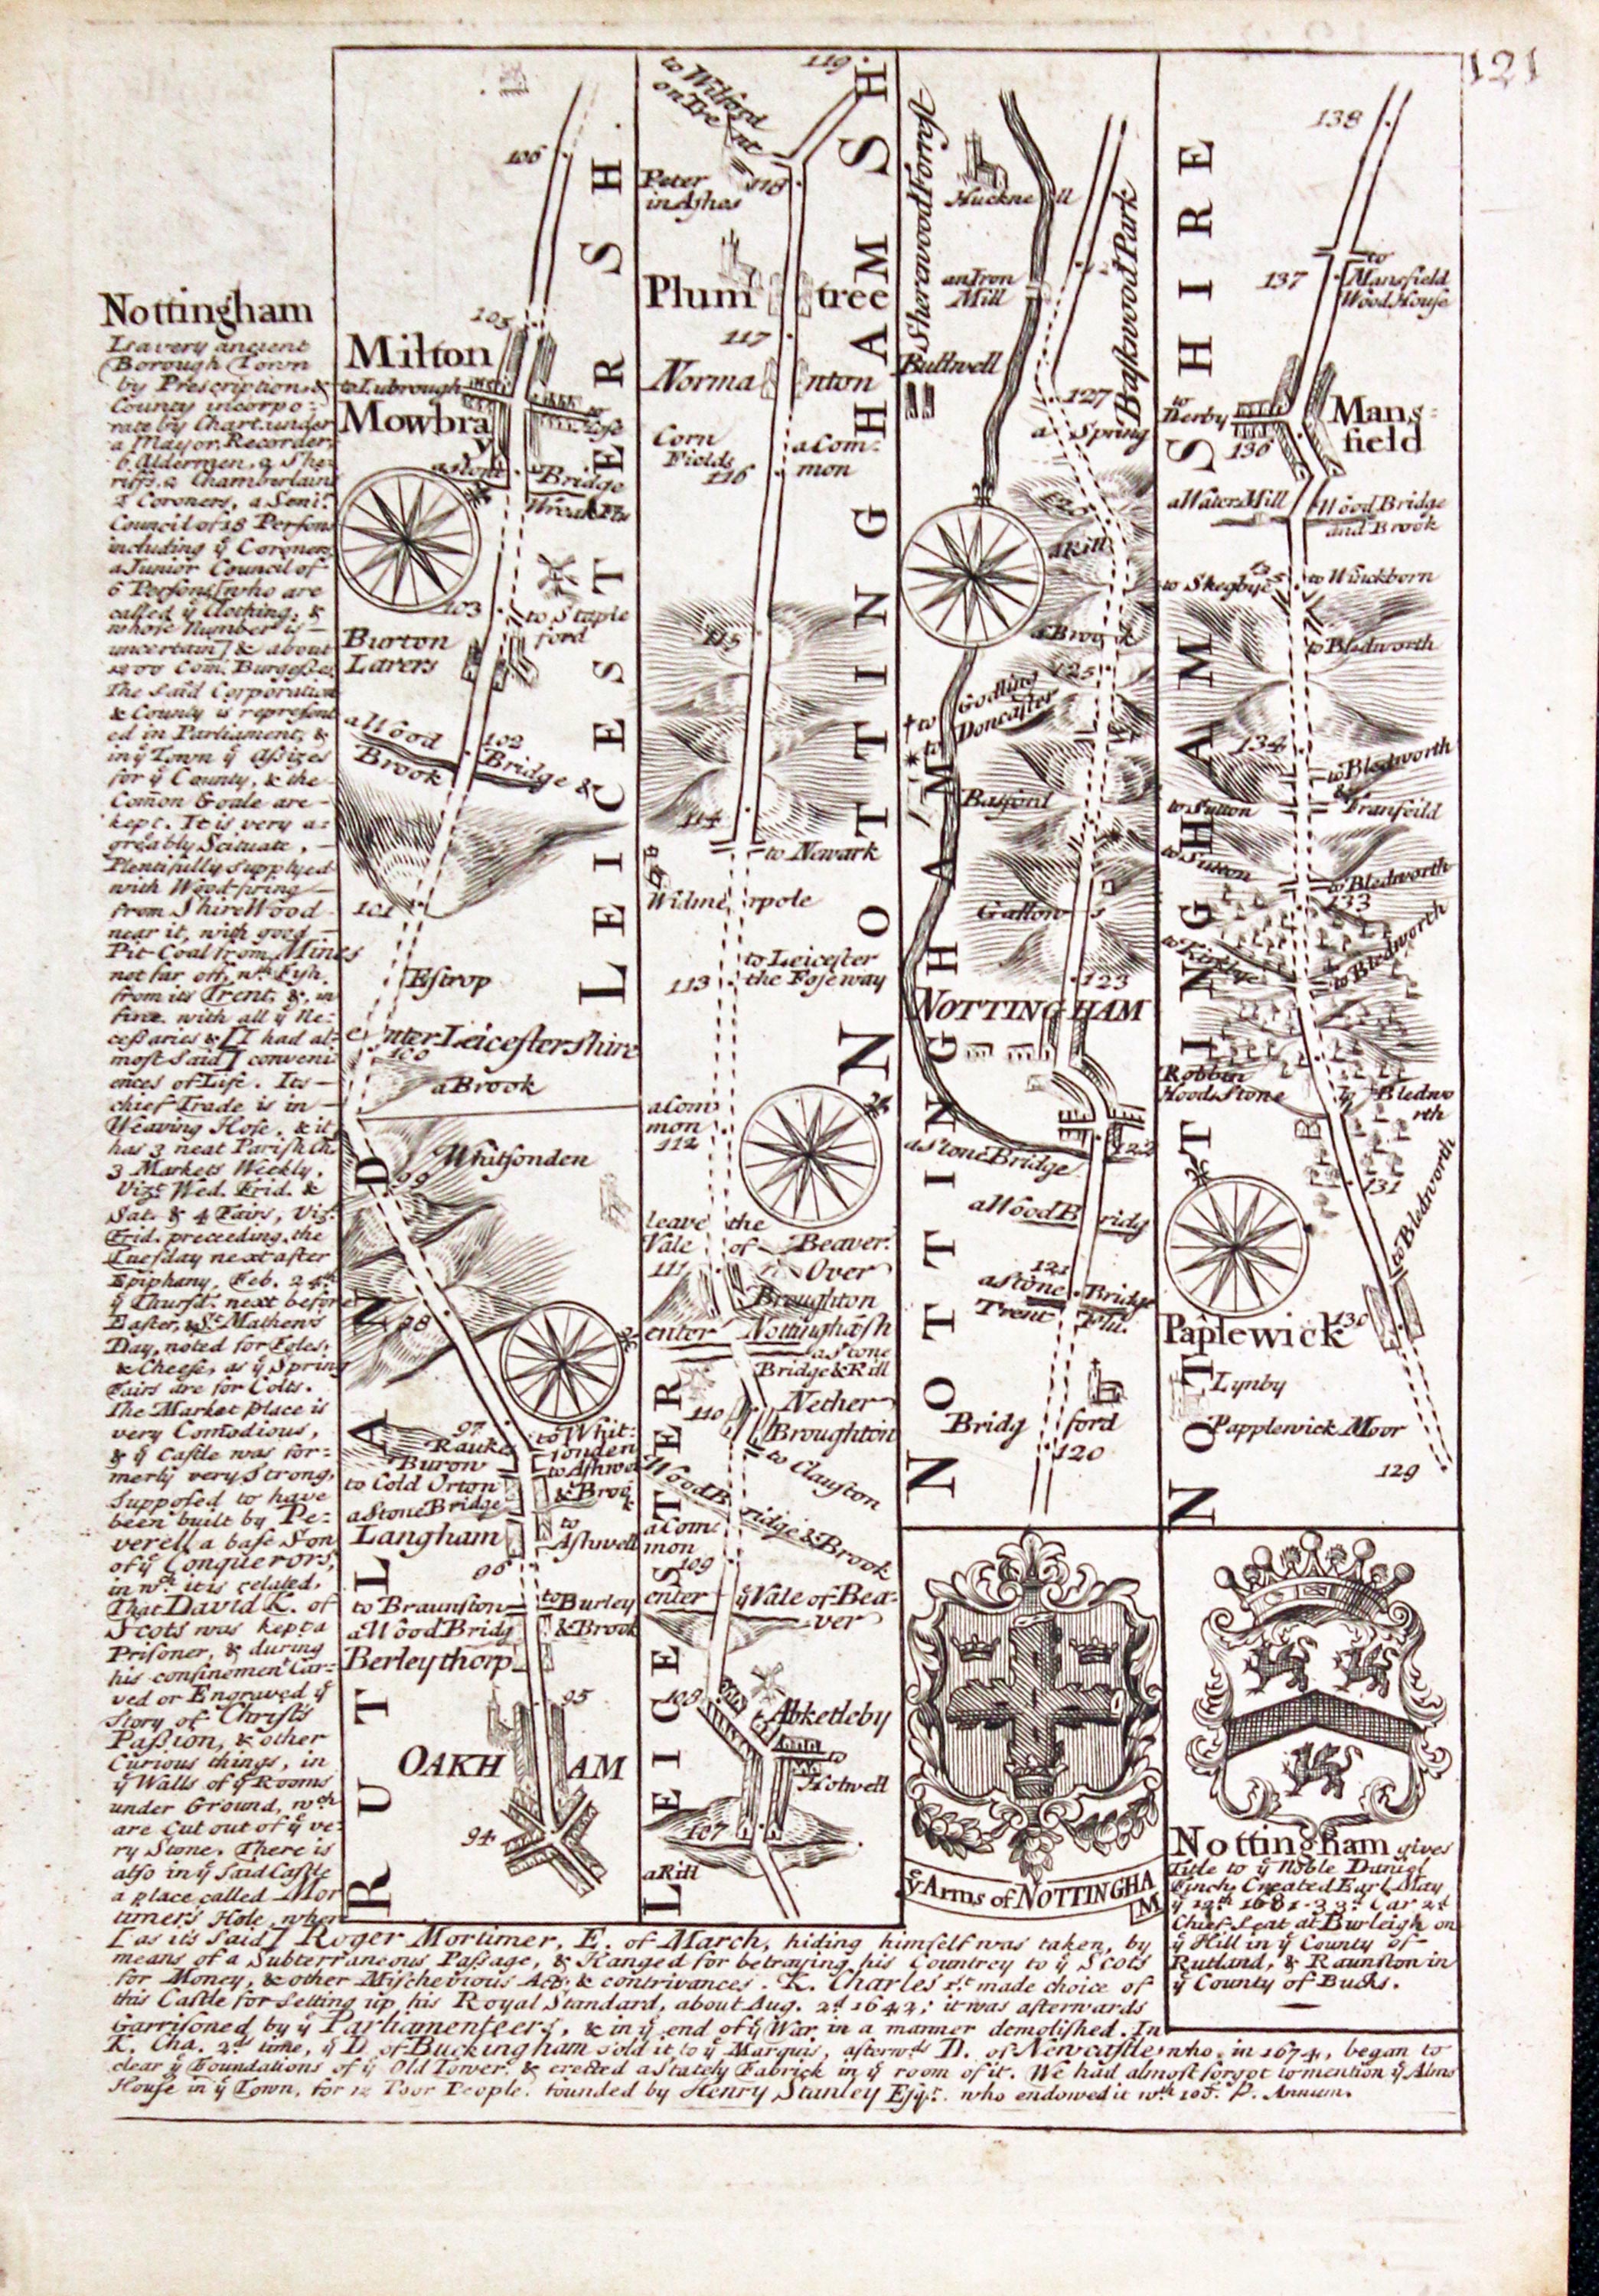 121
Nottingham
Is a very ancient
Borough Town
by Prescription, &
County incorpo:
rate by Chart. under
a Mayor, Recorder,
6 Aldermen, 2 She:
riffs, 2 Chamberlains
2 Coroners, a Seni.r
Council of 18 Persons
including ẙ Coroners,
a Junior Council of
6 Persons [who are
called ẙ Clothing, &
whose Number is
uncertain] & about
Com. Burgesses.
The said Corporation
& County is represent
ed in Parliament, &
in ẙ Town ẙ Assizes
for ẙ County, & the
Com̄on Goale are
kept. It is very a:
greably Scituate,
Plentifully supplyed
with Wood-firing
from Shire Wood
near it, with good
Pit-Coal from Mines
not far off, wth Fish
from its Trent, & in
fine with all ẙ Ne:
cessaries & [I had al:
most said] conveni
ences of Life. Its
chief Trade is in
Weaving Hose, & it
has 3 neat Parish Ch.
3 Markets Weekly,
Vizt. Wed. Frid. &
Sat. & 4 Fairs, Vizt.
Frid. preceeding the
Tuesday next after
Epiphany, Feb. 24th
ẙ Thursd. next before
Easter, & St. Mathew's
Day, noted for Foles,
& Cheese, as ẙ Spring
Fairs are for Colts.
The Market place is
very Com̄odious,
& ẙ Castle was for:
merly very Strong,
Supposed to have
been built by Pe:
verell a base Son
of ẙ Conquerors,
in wch it is related,
That David K. of
Scots was kept a
Prisoner, & during
his confinement Car:
ved or Engraved ẙ
Story of Christs
Passion, & other
Curious things, in
ẙ Walls of ẙ Rooms
under Ground, wch
are Cut out of ẙ ve:
ry Stone. There is
also in ẙ said Castle
a place called Mor
timer's Hole, where
[as its said] Roger Mortimer, E. of March, hiding himself was taken, by
means of a Subterraneous Passage, & Hanged for betraying his Countrey to ẙ Scots
for Money, & other Mischevious Acts & contrivances. K. Charles 1st. made choice of
this Castle for setting up his Royal Standard, about Aug. 2d 1642; it was afterwards
Garrisoned by ẙ Parliamenteers, & in ẙ end of ẙ War in a manner demolished. In
K. Cha. 2ds time, ẙ D. of Buckingham sold it to ẙ Marquis, afterwds D. of Newcastle, who, in 1674, began to
clear ẙ Foundations of ẙ Old Tower, & erected a Stately Fabrick in ẙ room of it. We had almost forgot to mention ẙ Alms
House in ẙ Town, for 12 Poor People, founded by Henry Stanley Esqr. who endowed it wth P. Annum.
106
105
Milton
to Lubrough
Mowbra
y
a Stone Bridge
Wreak Flu
103
to Staple
ford
Burton
Larers
a Wood
102
Bridge &
Brook
101
Estrop
enter Leicestershire
100
a Brook
Whitsonden
99
98
97
Rauke
Buron
to Whit:
sonden
to Ashwe
& Broo
k
to Cold Orton
a Stone Bridge
Langham
to
Ashwell
96
to Braunston
to Burley
& Brook
a Wood Bridg
Berleythorp
95
OAKHAM
94
RUTLAND
LEICESTERSH.
119
to Wilford
on Trent
118
Peter
in Ashes
Plumtree
117
Normanton
Corn
Fields
a Com:
mon
116
115
114
to Newark
Widmerpole
to Leicester
the Foseway
113
a Com
mon
112
leave the
Vale of Beaver.
111
Over
Broughton
enter Nottinghāsh
a Stone
Bridge & Rill
Nether
Broughton
110
to Clauston
Wood Bridge & Brook
a Com:
mon
109
enter ẙ Vale of Bea:
ver
108
Abketleby
to
Holwell
107
a Rill
LEICESTER
NOTTINGHAMSH
Sherewood Forrest
Hucknell
an Iron
Mill
Bullwell
Baskwood Park
127
a Spring
a Rill
a Brook
125
† to Godling
* to Doncaster
Basford
Gallows
123
NOTTINGHAM
122
a Stone Bridge
a Wood Bridg
121
a Stone Bridge
Trent Flu.
Bridgford
120
NOTTINGHAM
ẙ Arms of NOTTINGHAM
138
137
to
Mansfield
Wood House
to
Derby
Mans:
field
136
a Water Mill
Wood Bridge
and Brook
135
to Skegbye
to Winckborn
to Bledworth
134
to Bledworth
&
Franfeild
to Sutton
to Sutton
to Bledworth
133
to Kirkbye
to Bledworth
Robbin
Hoods Stone
to Bledwo
rth
131
to Bledworth
130
Paplewick
Lynby
Papplewick Moor
129
NOTTINGHAMSHIRE
Nottingham gives
Title to ẙ Noble Daniel
Finch, Created Earl May
ẙ 12th 1681-33d. Car 2d
Chief Seat at Burleigh on
ẙ Hill in ẙ County of
Rutland, & Raunston in
ẙ County of Bucks.